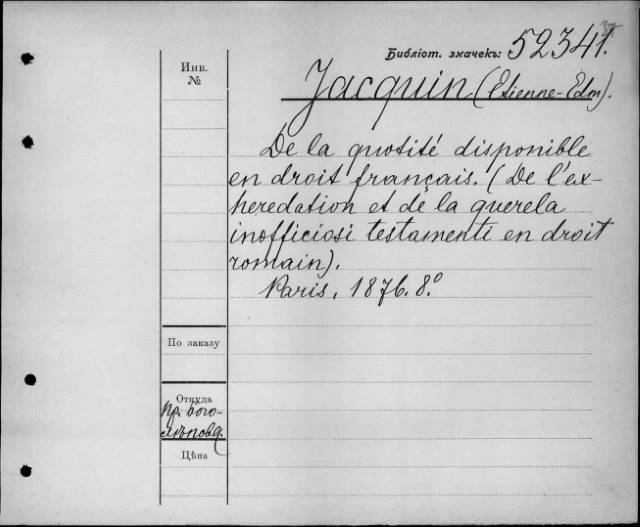 Библіот. значекъ: 52341.
Инв.
№
Jacquin (Etienne-Edm).
De la quotité disponible
en droit français. (De l'ex-
heredation et de la querela
inofficiosi testamenti en droit
romain).
Paris, 1876. 8º
По заказу
Откуда
Пр. Бого-
Цѣна